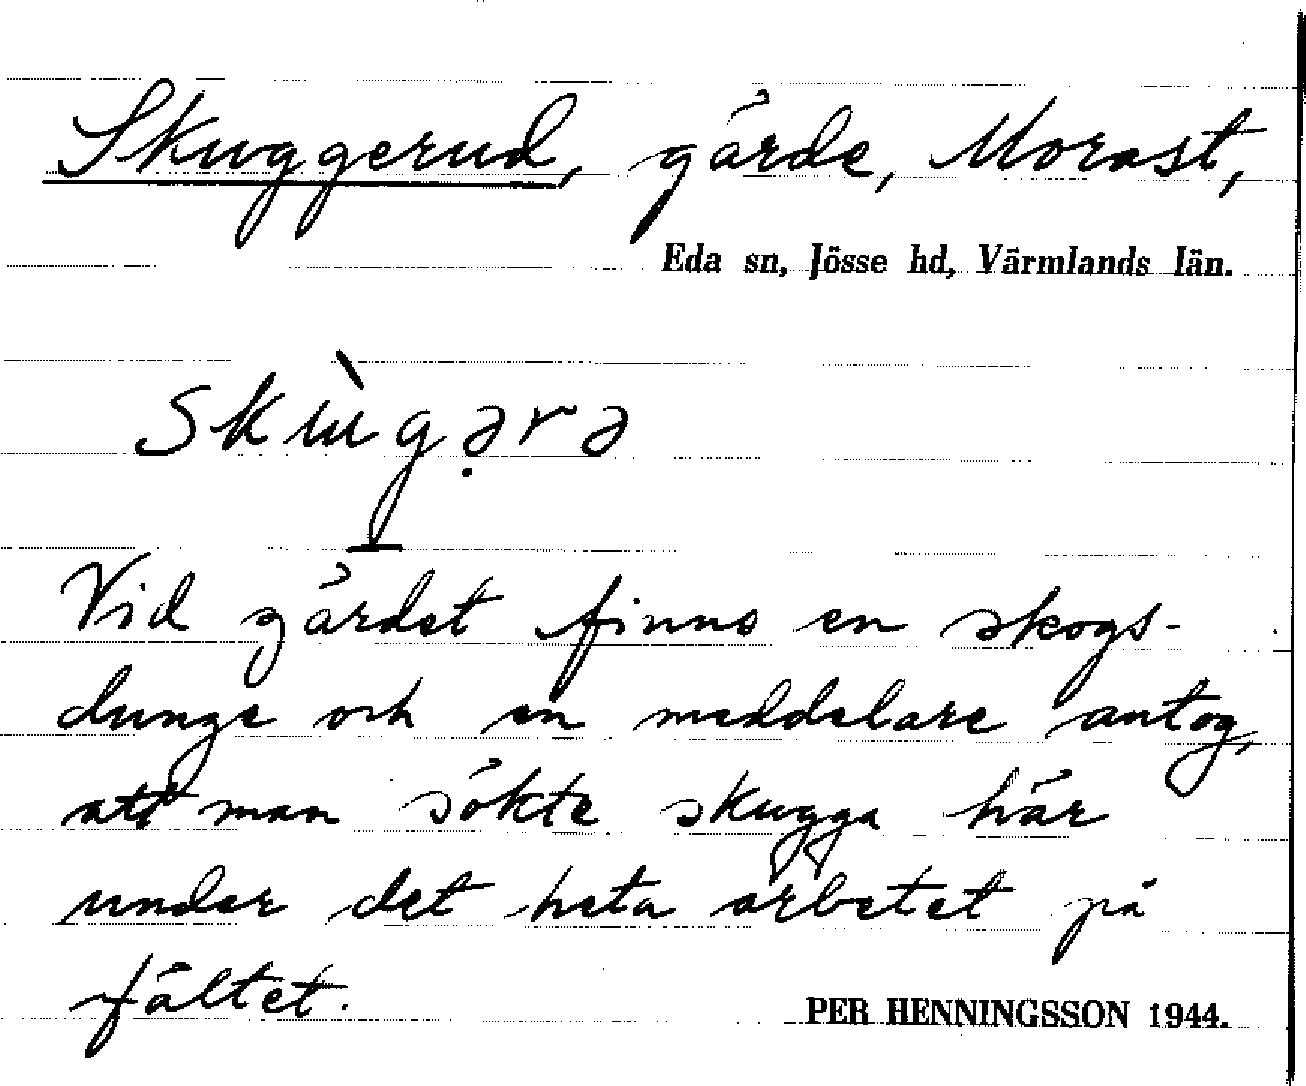 Skuggerud, gärde, Morast,
Eda sn, Jösse hd, Värmlands län.
skɯ̀gə̣rə
Vid gärdet finns en skogs-
dunge och en meddelare antog,
att man sökte skugga här
under det heta arbetet på
fältet.
PER HENNINGSSON 1944.